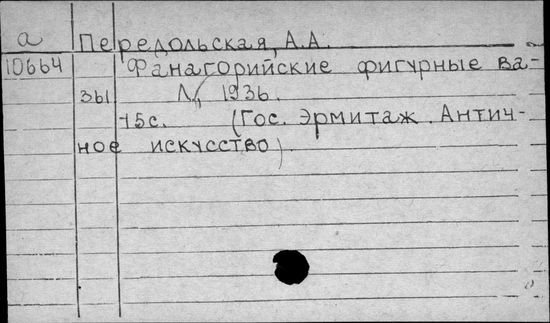 а Передольская, А.А.
10664 Фанагорийские фигурные ва-
зы Л., 1936.
15с. (Гос. Эрмитаж. Антич-
ное искусство)